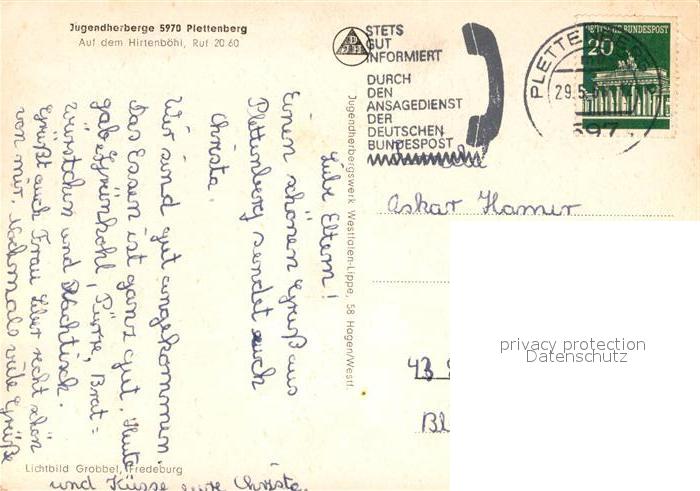 Jugendherberge 5970 Plettenberg
Auf dem Hirtenböhl, Ruf 20 60
STETS
GUT
INFORMIERT
DURCH
DEN
ANSAGEDIENST
DER
DEUTSCHEN
BUNDESPOST
DEUTSCHE BUNDESPOST
20
PLETTENBERG
29.5.
597
Liebe Eltern!
Einen schönen Gruß aus
Plettenberg sendet euch
Christa.
Wir sind gut angekommen.
Das Essen ist ganz gut. Heute
gab es Grünkohl, Püree, Brat=
würstchen und Nachtisch.
Grüßt auch Frau Liber recht schön
von mir. Nochmals viele Grüße
und Küsse eure Christa.
Jugendherbergswerk Westfalen-Lippe, 58 Hagen/Westf.
Familie
Oskar Hamer
43
Bl
privacy protection
Datenschutz
Lichtbild Grobbel, Fredeburg